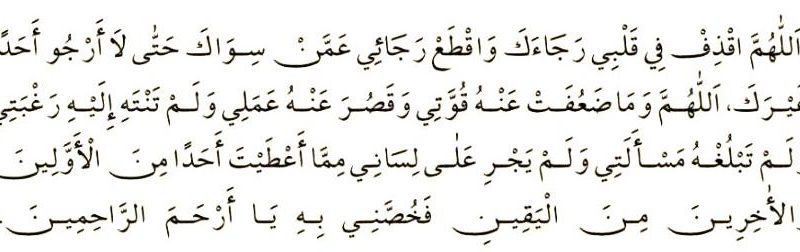 اَللّٰهُمَّ اقْذِفْ فِي قَلْبِي رَجَاءَكَ وَاقْطَعْ رَجَائِي عَمَّنْ سِوَاكَ حَتّٰى لَا أَرْجُو أَحَدًا
غَيْرَكَ، اَللّٰهُمَّ وَمَا ضَعُفَتْ عَنْهُ قُوَّتِي وَقَصُرَ عَنْهُ عَمَلِي وَلَمْ تَنْتَهِ إِلَيْهِ رَغْبَتِي
وَلَمْ تَبْلُغْهُ مَسْأَلَتِي وَلَمْ يَجْرِ عَلٰى لِسَانِي مِمَّا أَعْطَيْتَ أَحَدًا مِنَ الْأَوَّلِينَ
وَالْاٰخِرِينَ مِنَ الْيَقِينِ فَخُصَّنِي بِهِ يَا أَرْحَمَ الرَّاحِمِينَ.